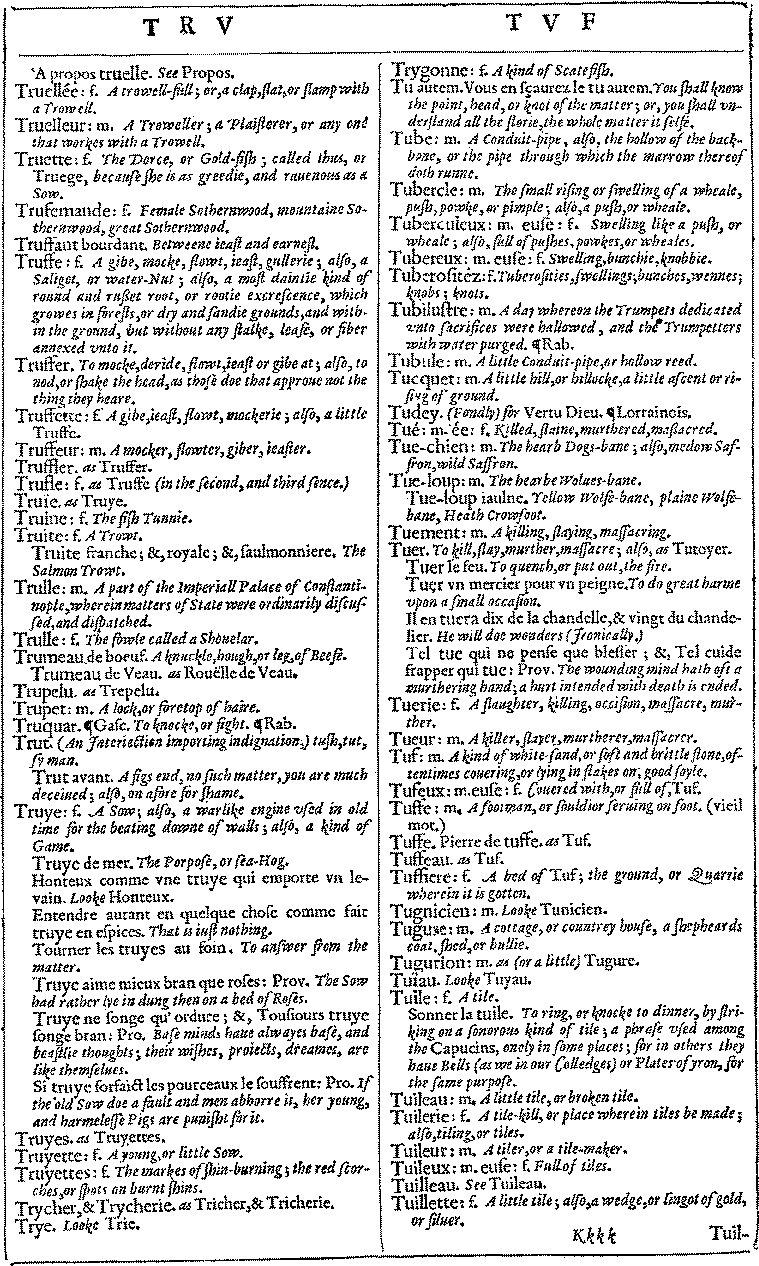 T R V
'A propos truelle. See Propos.
Truellée: f. A trowell-full; or, a clap, flat, or slamp with
a Trowell.
Truelleur: m. A Troweller; a Plaisterer, or any one
that workes with a Trowell.
Truette: f. The Dorce, or Gold-fish; called thus, or
Truege, because she is as greedie, and rauenous as a
Sow.
Trufemande: f. Female Sothernwood, mountaine So-
thernwood, great Sothernwood.
Truffant bourdant. Betweene ieast and earnest.
Truffe: f. A gibe, mocke, flowt, ieast, gullerie; also, a
Saligot, or water-Nut; also, a most daintie kind of
round and russet root, or rootie excrescence, which
growes in forests, or dry and sandie grounds, and with-
in the ground, but without any stalke, leafe, or fiber
annexed vnto it.
Truffer. To mocke, deride, flowt, ieast or gibe at; also, to
nod, or shake the head, as those doe that approue not the
thing they heare.
Truffette: f. A gibe, ieast, flowt, mockerie; also, a little
Truffe.
Truffeur: m. A mocker, flowter, giber, ieaster.
Truffler. as Truffer.
Trufle: f. as Truffe (in the second, and third sence.)
Truie. as Truye.
Truine: f. The fish Tunnie.
Truite: f. A Trowt.
Truite franche; &, royale; &, saulmonniere. The
Salmon Trowt.
Trulle: m. A part of the Imperiall Palace of Constanti-
nople, wherein matters of State were ordinarily discus-
sed, and dispatched.
Trulle: f. The fowle called a Shouelar.
Trumeau de boeuf. A knuckle, hough, or leg, of Beefe.
Trumeau de Veau. as Rouëlle de Veau.
Trupelu. as Trepelu.
Trupet: m. A lock, or foretop of haire.
Truquar. ¶Gasc. To knocke, or fight. ¶Rab.
Trut. (An Interiection importing indignation.) tush, tut,
fy man.
Trut avant. A figs end, no such matter, you are much
deceiued; also, on afore for shame.
Truye: f. A Sow; also, a warlike engine vsed in old
time for the beating downe of walls; also, a kind of
Game.
Truye de mer. The Porpose, or sea-Hog.
Honteux comme vne truye qui emporte vn le-
vain. Looke Honteux.
Entendre autant en quelque chose comme fait
truye en espices. That is iust nothing.
Tourner les truyes au foin. To answer from the
matter.
Truye aime mieux bran que roses: Prov. The Sow
had rather lye in dung then on a bed of Roses.
Truye ne songe qu' ordure; &, Tousiours truye
songe bran: Pro. Base minds haue alwayes base, and
beastlie thoughts; their wishes, proiects, dreames, are
like themselues.
Si truye forfaict les pourceaux le souffrent: Pro. If
the old Sow doe a fault and men abhorre it, her young,
and harmelesse Pigs are punisht for it.
Truyes. as Truyettes.
Truyette: f. A young, or little Sow.
Truyettes: f. The markes of shin-burning; the red scor-
ches, or spots on burnt shins.
Trycher, & Trycherie. as Tricher, & Tricherie.
Trye. Looke Trie.
T V F
Trygonne: f. A kind of Scatefish.
Tu autem. Vous en sçaurez le tu autem. You shall know
the point, head, or knot of the matter; or, you shall vn-
derstand all the storie, the whole matter it selfe.
Tube: m. A Conduit-pipe, also, the hollow of the back-
bone, or the pipe through which the marrow thereof
doth runne.
Tubercle: m. The small rising or swelling of a wheale,
push, powke, or pimple; also, a push, or wheale.
Tuberculeux: m. euse: f. Swelling like a push, or
wheale; also, full of pushes, powkes, or wheales.
Tubereux: m. euse: f. Swelling, bunchie, knobbie.
Tuberositéz: f. Tuberosities, swellings, bunches, wennes;
knobs; knots.
Tubilustre: m. A day whereon the Trumpets dedicated
vnto sacrifices were hallowed, and the Trumpetters
with water purged. ¶Rab.
Tubule: m. A little Conduit-pipe, or hollow reed.
Tucquet: m. A little hill, or hillocke, a little ascent or ri-
sing of ground.
Tudey. (Fondly) for Vertu Dieu. ¶Lorrainois.
Tué: m. ée: f. Killed, slaine, murthered, massacred.
Tue-chien: m. The hearb Dogs-bane; also, medow Saf-
fron, wild Saffron.
Tue-loup: m. The hearbe Wolues-bane.
Tue-loup iaulne. Yellow Wolfe-bane, plaine Wolfe-
bane, Heath Crowfoot.
Tuement: m. A killing, slaying, massacring.
Tuer. To kill, slay, murther, massacre; also, as Tutoyer.
Tuer le feu. To quench, or put out, the fire.
Tuer vn mercier pour vn peigne. To do great harme
vpon a small occasion.
Il en tuera dix de la chandelle, & vingt du chande-
lier. He will doe wonders (Ironically.)
Tel tue qui ne pense que blesser; &, Tel cuide
frapper qui tue: Prov. The wounding mind hath oft a
murthering hand; a hurt intended with death is ended.
Tuerie: f. A slaughter, killing, occision, massacre, mur-
ther.
Tueur: m. A killer, slayer, murtherer, massacrer.
Tuf: m. A kind of white sand, or soft and brittle stone, of-
tentimes couering, or lying in flakes on, good soyle.
Tufeux: m. euse: f. Couered with, or full of, Tuf.
Tuffe: m. A footman, or souldior seruing on foot. (vieil
mot.)
Tuffe. Pierre de tuffe. as Tuf.
Tuffeau. as Tuf.
Tuffiere: f. A bed of Tuf; the ground, or Quarrie
wherein it is gotten.
Tugnicien: m. Looke Tunicien.
Tugure: m. A cottage, or countrey house, a shepheards
coat, shed, or bullie.
Tugurion: m. as (or a little) Tugure.
Tuiau. Looke Tuyau.
Tuile: f. A tile.
Sonner la tuile. To ring, or knocke to dinner, by stri-
king on a sonorous kind of tile; a phrase vsed among
the Capucins, onely in some places; for in others they
haue Bells (as we in our Colledges) or Plates of yron, for
the same purpose.
Tuileau: m. A little tile, or broken tile.
Tuilerie: f. A tile-kill, or place wherein tiles be made;
also, tiling, or tiles.
Tuileur: m. A tiler, or a tile-maker.
Tuileux: m. euse: f. Full of tiles.
Tuilleau. See Tuileau.
Tuillette: f. A little tile; also, a wedge, or lingot of gold,
or siluer.
Kkkk Tuil-